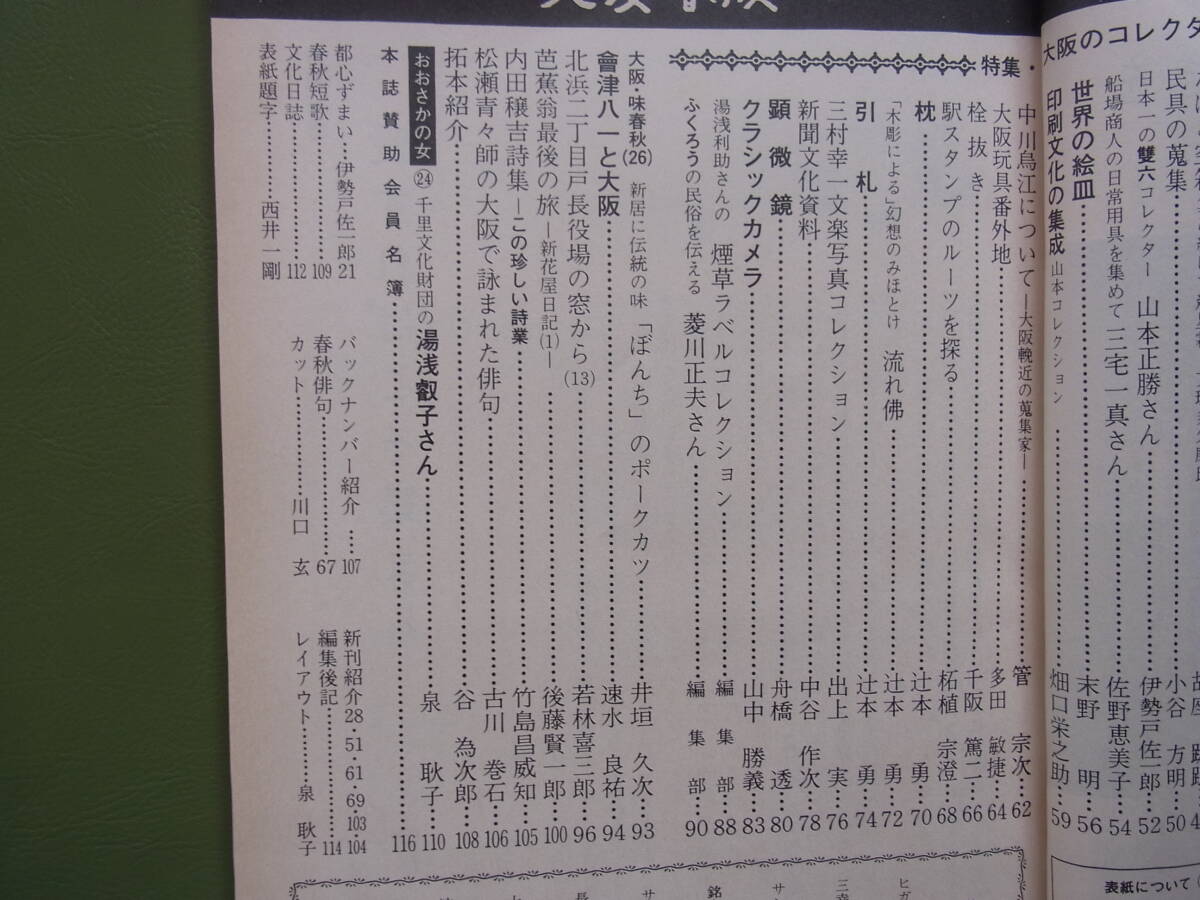 大阪のコレクタ
民具の蒐集 小谷 方明 50
日本一の雙六コレクター 山本正勝さん 伊勢戸佐一郎 52
船場商人の日常用具を集めて 三宅一真さん 佐野恵美子 54
世界の絵皿 末野 明 56
印刷文化の集成 山本コレクション 畑口栄之助 59
特集・
中川烏江について―大阪輓近の蒐集家― 管 宗次 62
大阪玩具番外地 多田 敏捷 64
栓抜き 千阪 篤二 66
駅スタンプのルーツを探る 柘植 宗澄 68
枕 辻本 勇 70
「木彫による」幻想のみほとけ 流れ佛 辻本 勇 72
引札 辻本 勇 74
三村幸一文楽写真コレクション 出上 実 76
新聞文化資料 中谷 作次 78
顕微鏡 舟橋 透 80
クラシックカメラ 山中 勝義 83
湯浅利助さんの 煙草ラベルコレクション 編集部 88
ふくろうの民俗を伝える 菱川正夫さん 編集部 90
大阪・味春秋(26) 新居に伝統の味 「ぼんち」のポークカツ 井垣 久次 93
會津八一と大阪 速水 良祐 94
北浜二丁目戸長役場の窓から(13) 若林喜三郎 96
芭蕉翁最後の旅―新花屋日記(1)― 後藤賢一郎 100
内田穣吉詩集―この珍しい詩業 竹島昌威知 105
松瀬青々師の大阪で詠まれた俳句 古川 巻石 106
拓本紹介 谷 為次郎 108
おおさかの女 ㉔ 千里文化財団の 湯浅叡子さん 泉 耿子 110
本誌賛助会員名簿 116
都心ずまい 伊勢戸佐一郎 21
春秋短歌 109
文化日誌 112
表紙題字 西井一剛
バックナンバー紹介 107
春秋俳句 67
カット 川口 玄
新刊紹介 28・51・61・69・103・104
編集後記 114
レイアウト 泉 耿子
表紙について